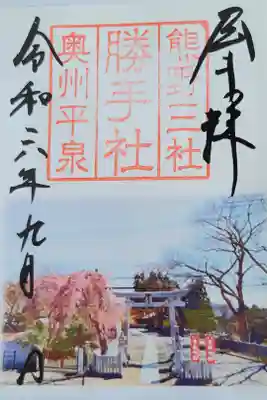 奉拝
熊野三社
勝手社
奥州平泉
令和六年九月 日